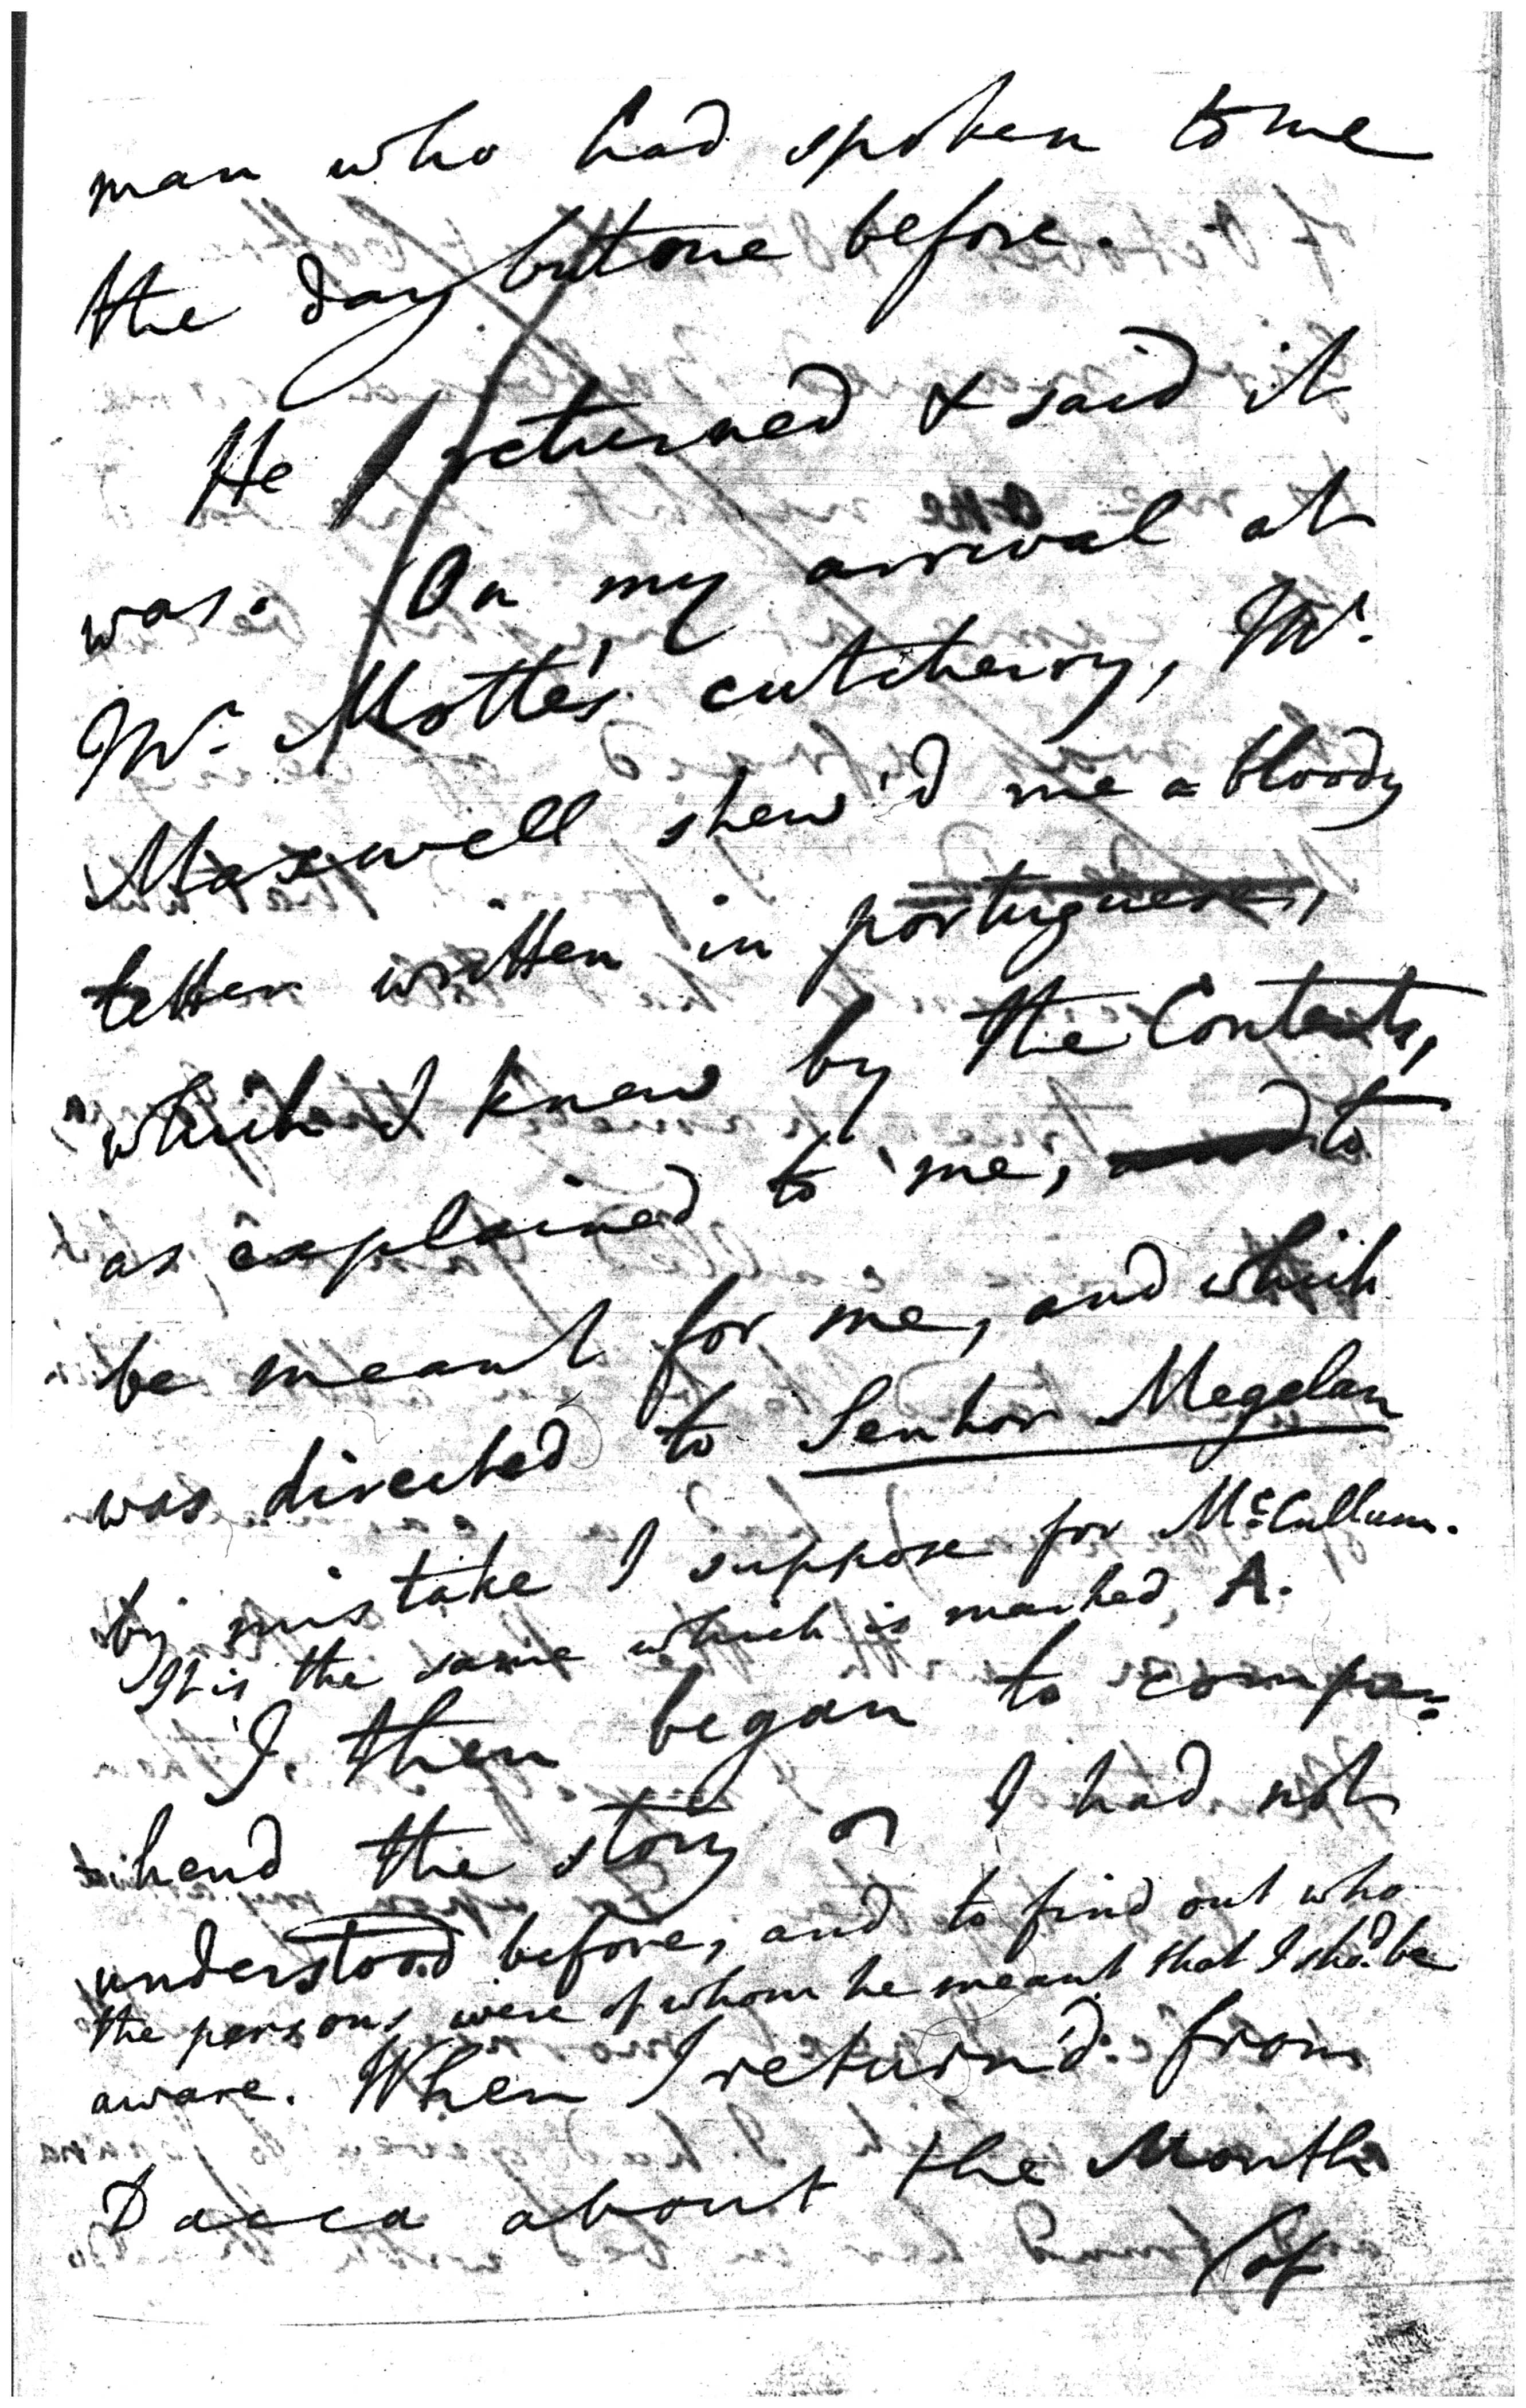 man who had spoken to me
the day but one before.
He returned & said it
was. On my arrival at
Mr. Motte's cutcherry, Mr.
Maxwell shew'd me a bloody
letter written in portuguese,
which I knew by the Contents,
as explained to me, and to
be meant for me, and which
was directed to Senhor Megelan
by mistake I suppose for McCullum.
It is the same which is marked, A.
I then began to compre=
hend the story I had not
understood before, and to find out who
the persons were of whom he meant that I shd. be
aware. When I return'd from
Dacca about the Month
of